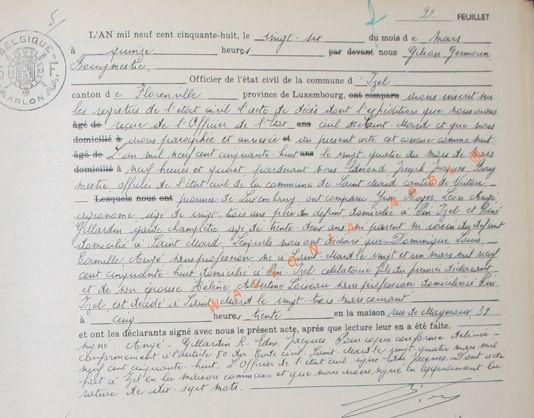 5
2e FEUILLET
BELGIQUE
ARLON
L'AN mil neuf cent cinquante-huit, le vingt-six du mois d e mars
à quinze heures par devant nous Gilson Germain
Bourgmestre,
Officier de l'état civil de la commune d 'Izel
canton d e Florenville province de Luxembourg, ont comparu avons inscrit sur
les registres de l'état civil l'acte de décès dont l'expédition que nous avons
âgé de reçue de l'Officier de l'État civil de Saint-Mard et que nous
domicilié à avons paraphée et annexée et au présent acte est conçue comme suit
âgé de L'an mil neuf cent cinquante-huit ans le vingt quatre du mois de mars
domicilié à neuf heures et quart pardevant Nous Edmond Joseph Jacques Bourg
mestre officier de l'état civil de la commune de Saint-Mard canton de Virton,
Lesquels nous ont province de Luxembourg, ont comparu Roger Léon Augé
agronome, âgé de vingt huit ans père du défunt, domicilié à Pin-Izel et René
Gillardin garde champêtre, âgé de trente deux ans ni parent ni voisin du défunt
domicilié à Saint-Mard. Lesquels nous ont déclaré que Dominique Louis
Camille, Augé sans profession né à Saint-Mard le vingt et un mars mil neuf
cent cinquante huit domicilié à Pin-Izel célibataire fils du premier déclarant
et de son épouse Hélène Albertine sans profession domiciliée à Pin
Izel, est décédé à Saint-Mard le vingt trois mars courant
à cinq heures trente en la maison rue de Mageroux 39
et ont les déclarants signé avec nous le présent acte, après que lecture leur en a été faite.
signé: Augé - Gillardin R - Edm. Jacques. Pour copie conforme délivrée
conformément à l'article 80 du Code civil. Saint-Mard le vingt quatre mars mil
neuf cent cinquante-huit. L'Officier de l'état civil signé Edm Jacques. Dont acte
fait à Izel en la maison commune et que nous avons signé en approuvant la
rature de dix-sept mots.